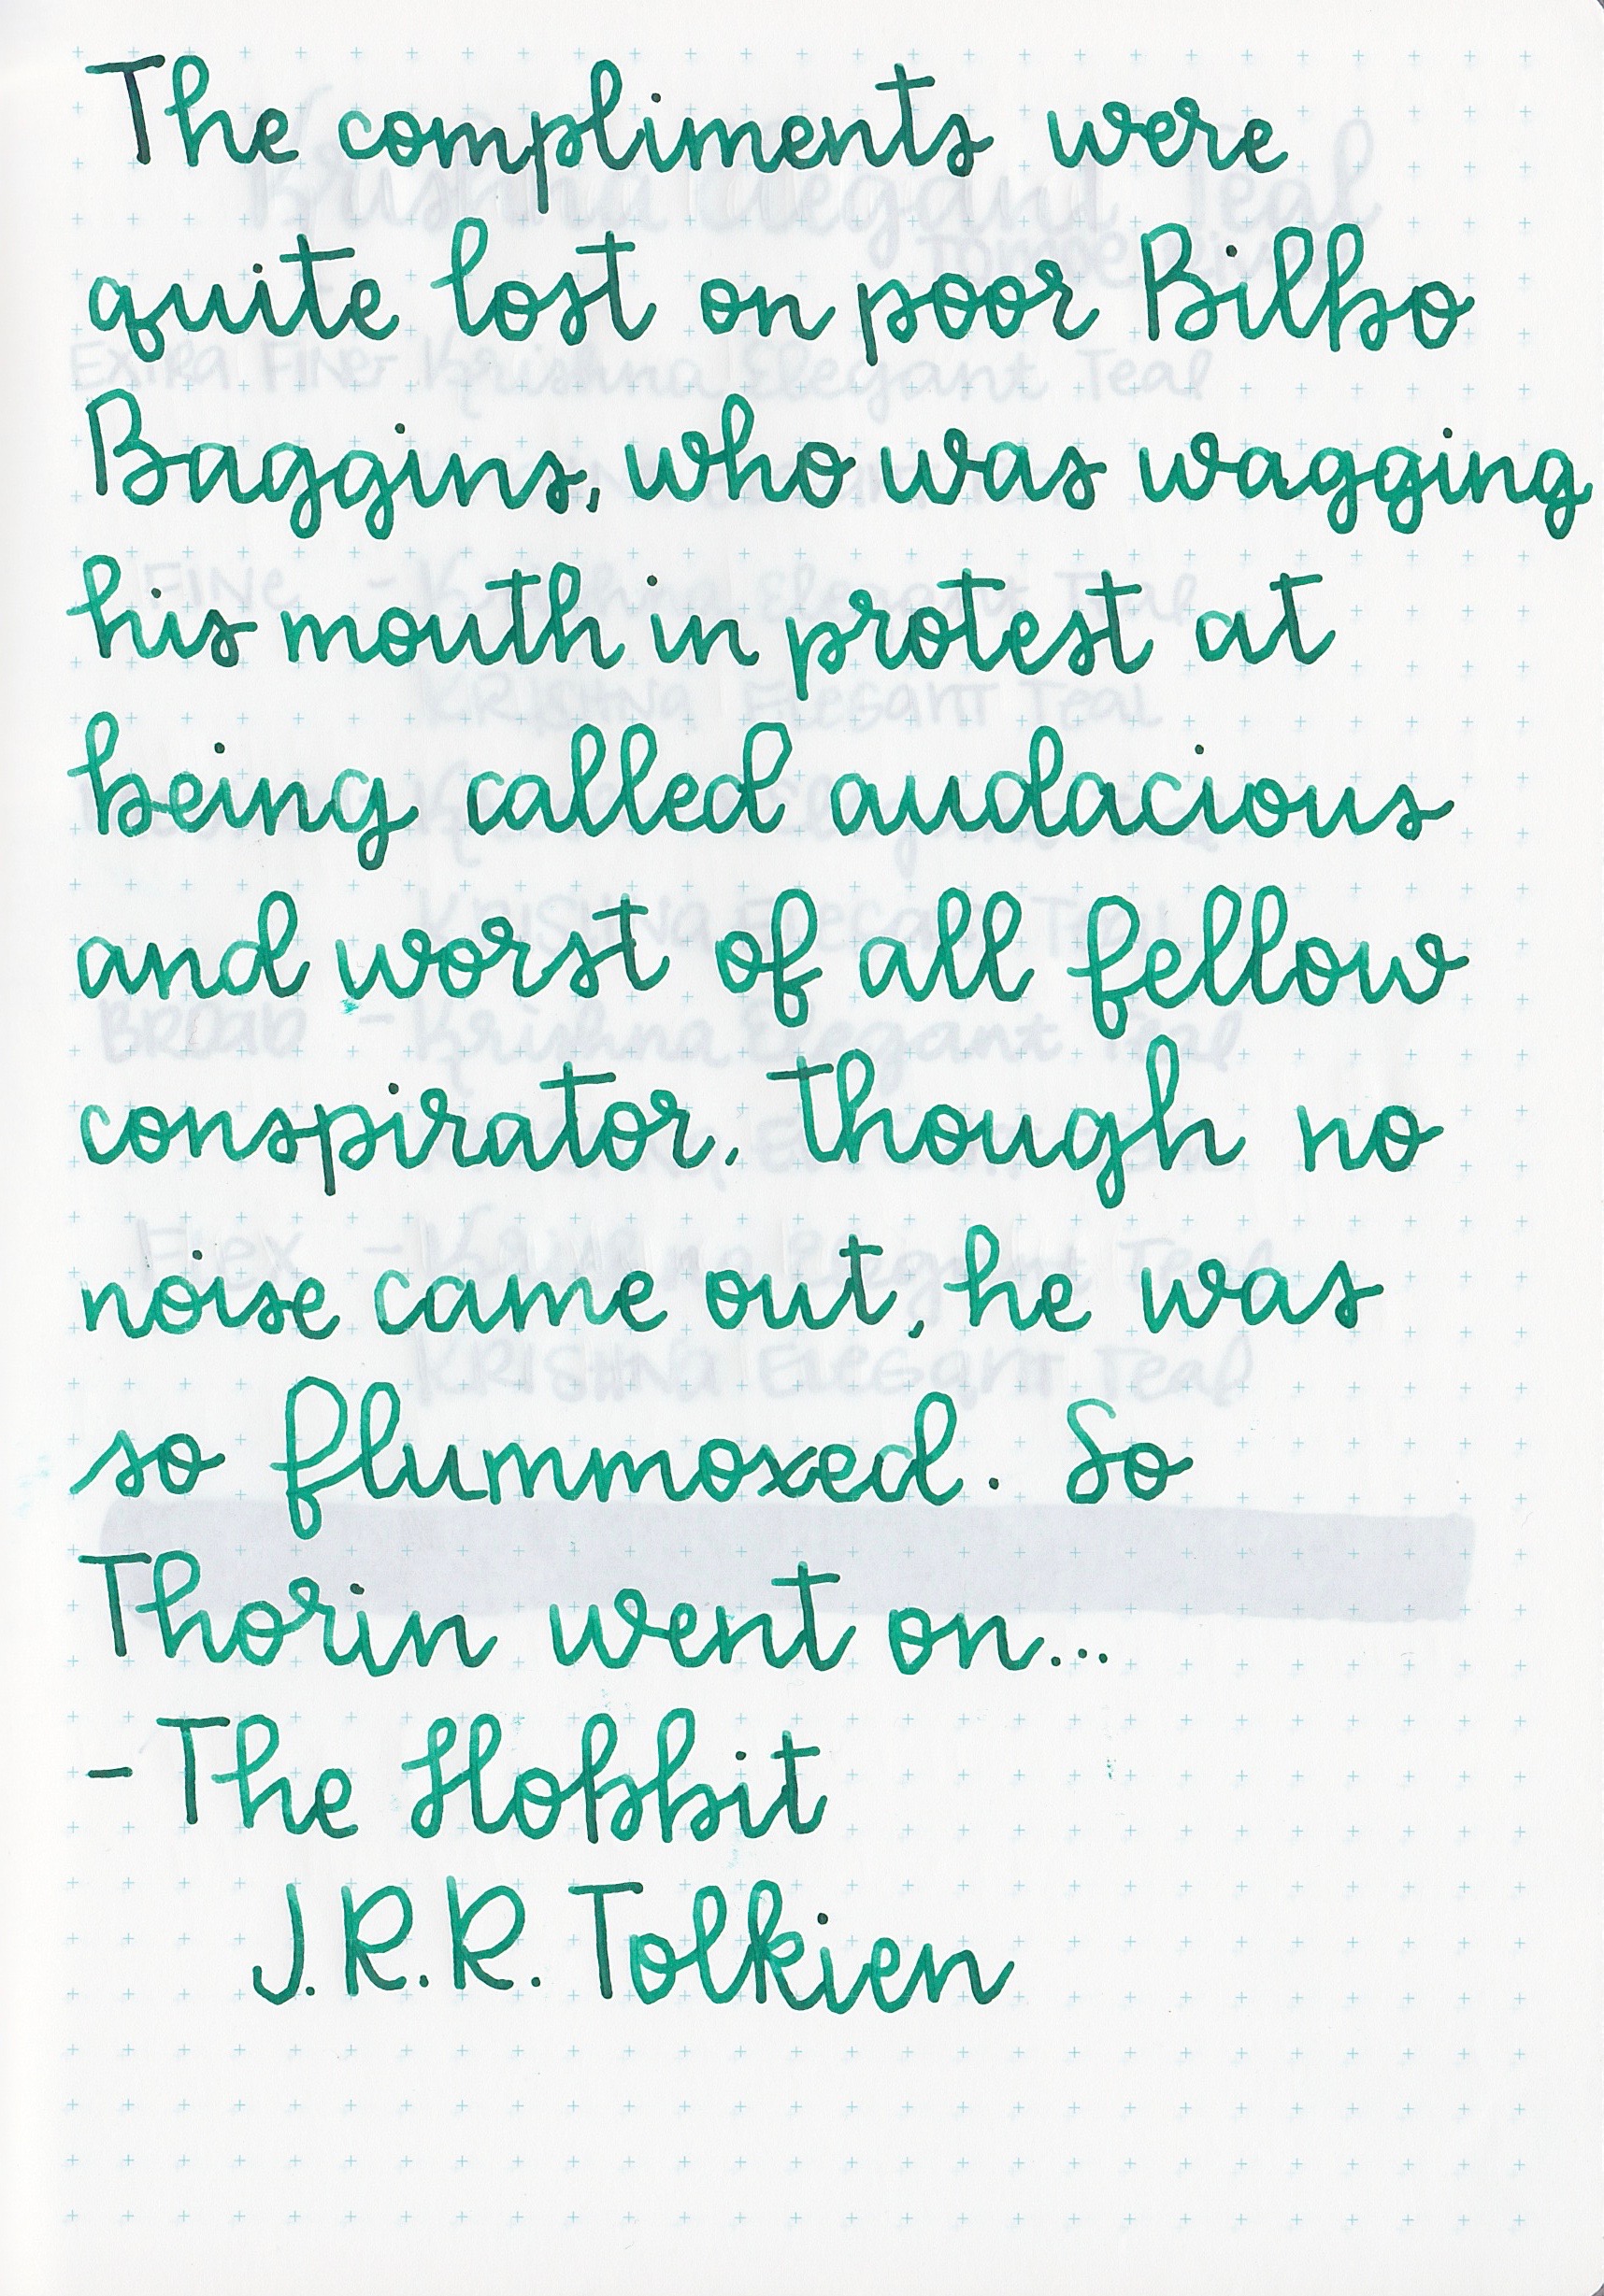 The compliments were
quite lost on poor Bilbo
Baggins, who was wagging
his mouth in protest at
being called audacious
and worst of all fellow
conspirator, though no
noise came out, he was
so flummoxed. So
Thorin went on...
- The Hobbit
J.R.R. Tolkien